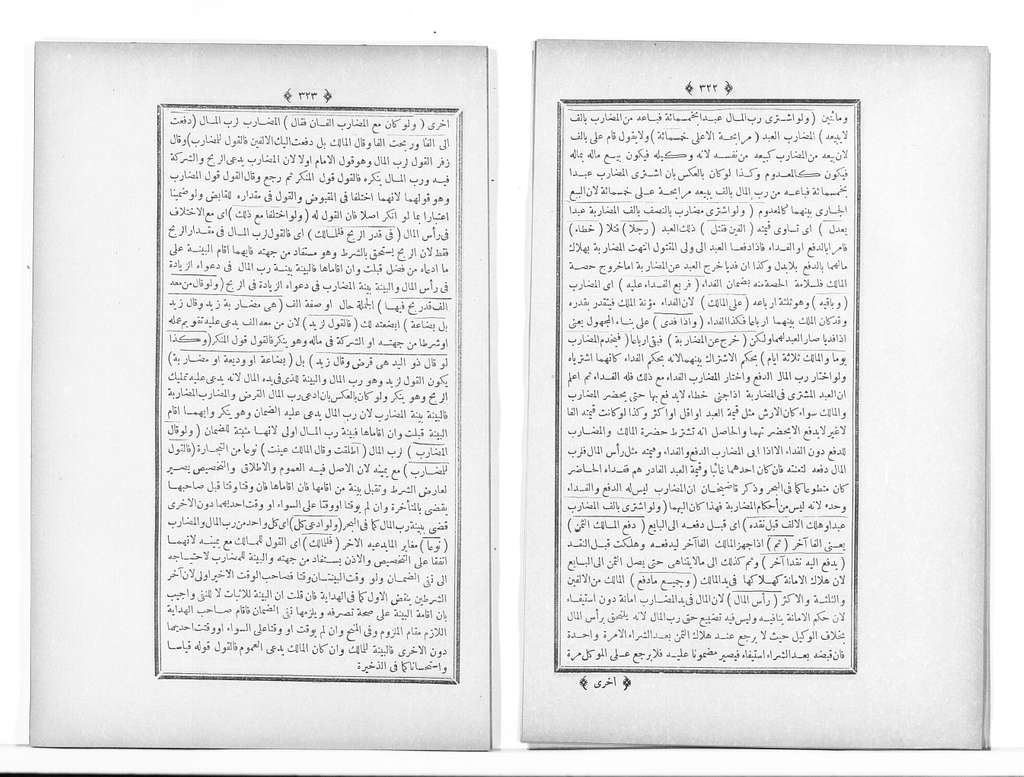 ﴿ ٣٢٢ ﴾
ومأتين ( ولو اشترى رب المال عبدا بخمسمائة فباعه من المضارب بالف
لا يبيعه ) المضارب العبد ( مرابحة الا على خمسمائة ) ولا يقول قام على بالف
لان بيعه من المضارب كبيعه من نفسه لانه وكيله فيكون بيع ماله بماله
فيكون كالمعدوم وكذا لو كان بالعكس بان اشترى المضارب عبدا
بخمسمائة فباعه من رب المال بالف يبيعه مرابحة على خمسمائة لان البيع
الجارى بينهما كالمعدوم ( ولو اشترى مضارب بالنصف بالف المضاربة عبدا
يعدل ) اى تساوى قيمته ( الفين فقتل ) ذلك العبد ( رجلا ) قتلا ( خطاء )
فامرا بالدفع او الفداء فاذا دفعا العبد الى ولى المقتول انتهت المضاربة بهلاك
مالهما بالدفع بلا بدل وكذا ان فديا خرج العبد عن المضاربة اما خروج حصة
المالك فلسلامة الحصة منه بضمان الفداء ( فربع الفداء عليه ) اى المضارب
( وباقيه ) وهو ثلثة ارباعه ( على المالك ) لان الفداء مؤنة الملك فيتقدر بقدره
وقد كان الملك بينهما ارباعا فكذا الفداء ( واذا فدى ) على بناء المجهول يعنى
اذا فديا صار العبد لهما ولكن ( خرج عن المضاربة ) فبقى ارباعا ( فيخدم المضارب
يوما والمالك ثلاثة ايام ) بحكم الاشتراك بينهما لانه بحكم الفداء كانهما اشترياه
ولو اختار رب المال الدفع واختار المضارب الفداء مع ذلك فله الفداء ثم اعلم
ان العبد المشترى فى المضاربة اذا جنى خطاء لا يدفع بها حتى يحضر المضارب
والمالك سواء كان الارش مثل قيمة العبد او اقل او اكثر وكذا لو كانت قيمته الفا
لا غير لا يدفع الا بحضرتهما والحاصل انه تشترط حضرة المالك والمضارب
للدفع دون الفداء الا اذا ابى المضارب الدفع والفداء وقيمته مثل رأس المال فلرب
المال دفعه لتعنته فان كان احدهما غائبا وقيمة العبد الفا درهم ففداه الحاضر
كان متطوعا كما فى البحر وذكر قاضيخان ان المضارب ليس له الدفع والفداء
وحده لانه ليس من احكام المضاربة فلهذا كان اليهما ( ولو اشترى بالف المضارب
عبدا وهلك الالف قبل نقده ) اى قبل دفعه الى البايع ( دفع المالك الثمن )
يعنى الفا آخر ( ثم ) اذا جهز المالك الفا آخر ليدفعه وهلكت قبل النقد
( يدفع اليه نقدا آخر ) وثم كذلك الى ما لا يتناهى حتى يصل الثمن الى البايع
لان هلاك الامانة كهلاكها فى يد المالك ( وجميع ما دفع ) المالك من الالفين
والثلثة والاكثر ( رأس المال ) لان المال فى يد المضارب امانة دون استيفاء
لان حكم الامانة ينافيه وليس فيه تضييع حق رب المال لانه يلتحق برأس المال
بخلاف الوكيل حيث لا يرجع عند هلاك الثمن بعد الشراء الا مرة واحدة
فان قبضه بعد الشراء استيفاء فيصير مضمونا عليه فلا يرجع على الموكل مرة
﴿ اخرى ﴾
﴿ ٣٢٣ ﴾
اخرى ( ولو كان مع المضارب الفان فقال ) المضارب لرب المال ( دفعت
الى الفا وربحت الفا وقال المالك بل دفعت اليك الالفين فالقول للمضارب ) وقال
زفر القول لرب المال وهو قول الامام اولا لان المضارب يدعى الربح والشركة
فيه ورب المال ينكره فالقول قول المنكر ثم رجع وقال القول قول المضارب
وهو قولهما لانهما اختلفا فى المقبوض والقول فى مقداره للقابض ولو ضمينا
اعتبارا بما لو انكر اصلا فان القول له ( ولو اختلفا مع ذلك ) اى مع الاختلاف
فى رأس المال ( فى قدر الربح فللمالك ) اى فالقول لرب المال فى مقدار الربح
فقط لان الربح يستحق بالشرط وهو مستفاد من جهته فايهما اقام البينة على
ما ادعاه من فضل قبلت وان اقاماها فالبينة بينة رب المال فى دعواه الزيادة
فى رأس المال والبينة بينة المضارب فى دعواه الزيادة فى الربح ( ولو قال من معه
الف قد ربح فيها ) الجملة حال او صفة الف ( هى مضاربة زيد وقال زيد
بل بضاعة ) ابضعته لك ( فالقول لزيد ) لان من معه الف يدعى عليه تقويم عمله
او شرطا من جهته او الشركة فى ماله وهو ينكر فالقول قول المنكر ( وكذا
لو قال ذو اليد هى قرض وقال زيد ) بل ( بضاعة او وديعة او مضاربة )
يكون القول لزيد وهو رب المال والبينة للذى فى يده المال لانه يدعى عليه تمليك
الربح وهو ينكر ولو كان بالعكس بان ادعى رب المال القرض والمضارب المضاربة
فالبينة بينة المضارب لان رب المال يدعى عليه الضمان وهو ينكر وايهما اقام
البينة قبلت وان اقاماها فبينة رب المال اولى لانها مثبتة للضمان ( ولو قال
المضارب ) لرب المال ( اطلقت وقال المالك عينت ) نوعا من التجارة ( فالقول
للمضارب ) مع يمينه لان الاصل فيه العموم والاطلاق والتخصيص يصير
لعارض الشرط وتقبل بينة من اقامها فان اقاماها فان وقتا وقتا قبل صاحبها
يقضى بالمتأخرة وان لم يوقتا او وقتا على السواء او وقت احديهما دون الاخرى
قضى ببينة رب المال كما فى البحر ( ولو ادعى كل ) اى كل واحد من رب المال والمضارب
( نوعا ) مغاير المايدعيه الاخر ( فللمالك ) اى القول للمالك مع يمينه لانهما
اتفقا على التخصيص والاذن يستفاد من جهته والبينة للمضارب لاحتياجه
الى نفى الضمان ولو وقت البينتان وقتا فصاحب الوقت الاخير اولى لان آخر
الشرطين ينقض الاول كما فى الهداية فان قلت ان البينة للاثبات لا للنفى واجيب
بان اقامة البينة على صحة تصرفه ويلزمها نفى الضمان فاقام صاحب الهداية
اللازم مقام الملزوم وفى المنح وان لم يوقت او وقتا على السواء او وقتت احديهما
دون الاخرى فالبينة للمالك وان كان المالك يدعى العموم فالقول قوله قياسا
واستحسانا كما فى الذخيرة